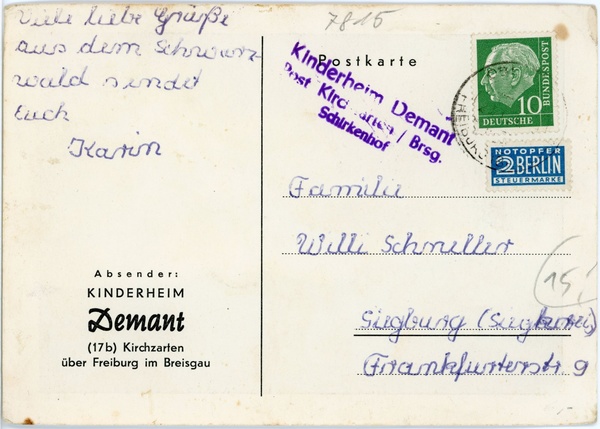 Viele liebe Grüße
aus dem Schwarz-
wald sendet
Euch
Karin
7815
Postkarte
Kinderheim Demant
Post Kirchzarten / Brsg.
Schirkenhof
10
DEUTSCHE
BUNDESPOST
NOTOPFER
2 BERLIN
STEUERMARKE
Familie
Willi Schneller
Siegburg
Frankfurterstr 9
15,
Absender:
KINDERHEIM
Demant
(17b) Kirchzarten
über Freiburg im Breisgau